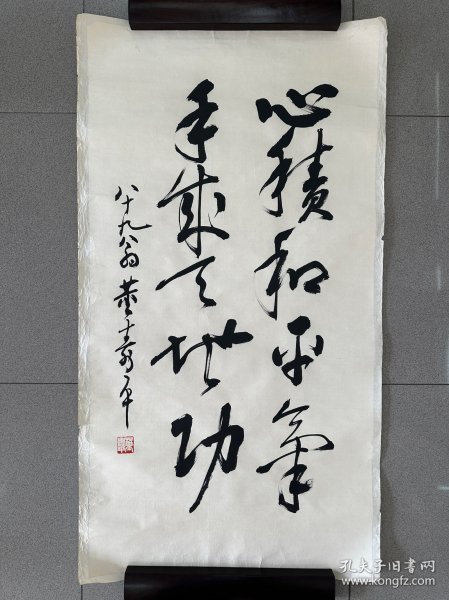 心積和平氣
手成天地功
八十九翁董壽平
孔夫子旧书网
www.kongfz.com